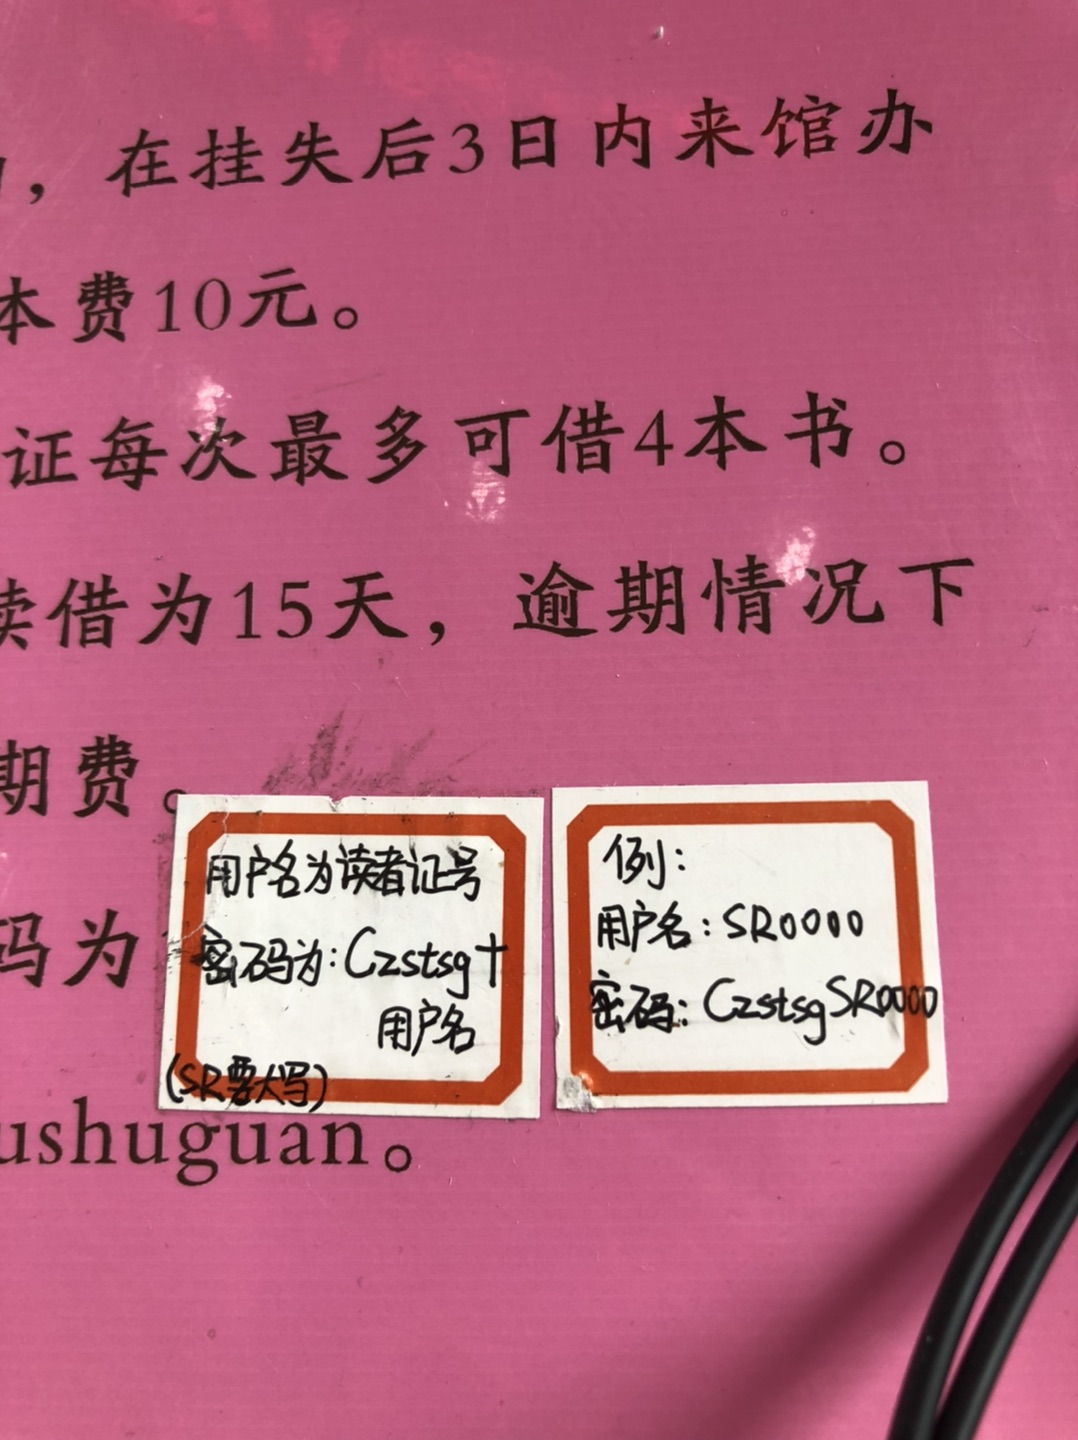 ，在挂失后3日内来馆办
本费10元。
证每次最多可借4本书。
续借为15天，逾期情况下
期费。
码为
用户名为读者证号
密码为：Czstsg+
用户名
(SR要大写)
例：
用户名：SR0000
密码：CzstsgSR0000
ushuguan。